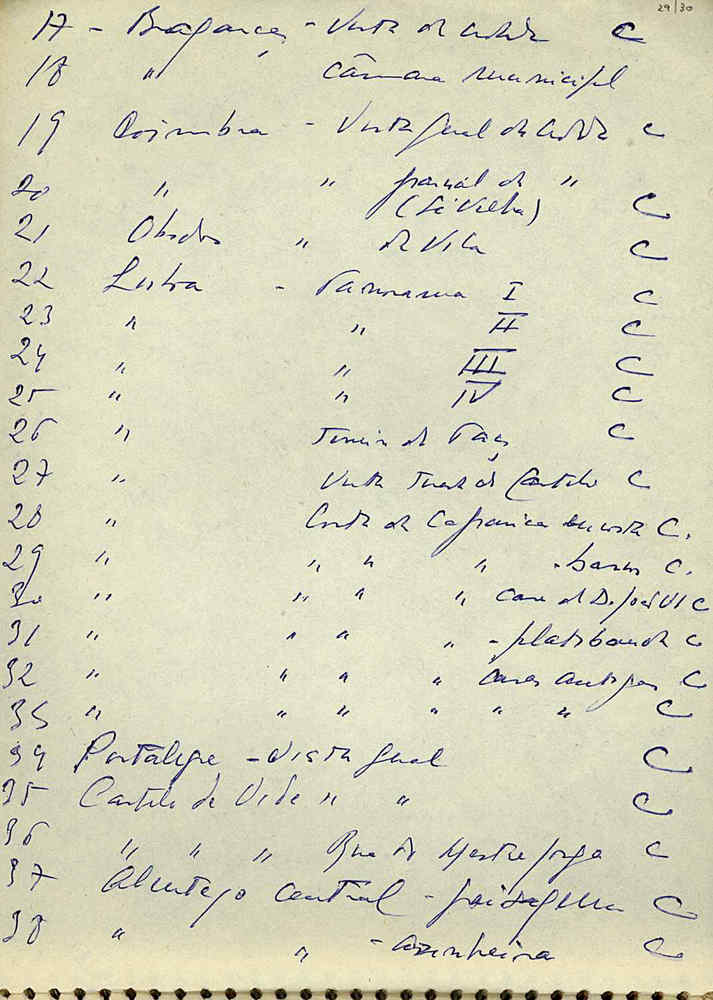 29/30
17 - Bragança - Vista da cidade C
18 " Câmara Municipal
19 Coimbra - Vista geral da cidade C
20 " " parcial da "
(Sé Velha) C
21 Obidos " da Vila C
22 Lisboa - Panorama I C
23 " " II C
24 " " III C
25 " " IV C
26 " Terreiro do Paço C
27 " Vista do Castelo C
28 " Costa da Caparica C.
29 " " " " - barcos C.
30 " " " " casa de D. João VI C
31 " " " " - platibanda C
32 " " " " casas antigas C
33 " " " " " " C
34 Portalegre - Vista geral C
35 Castelo de Vide " " C
36 " " " Rua de Mestre Jorge C
37 Alentejo central - paisagem C
38 " " - azinheira C